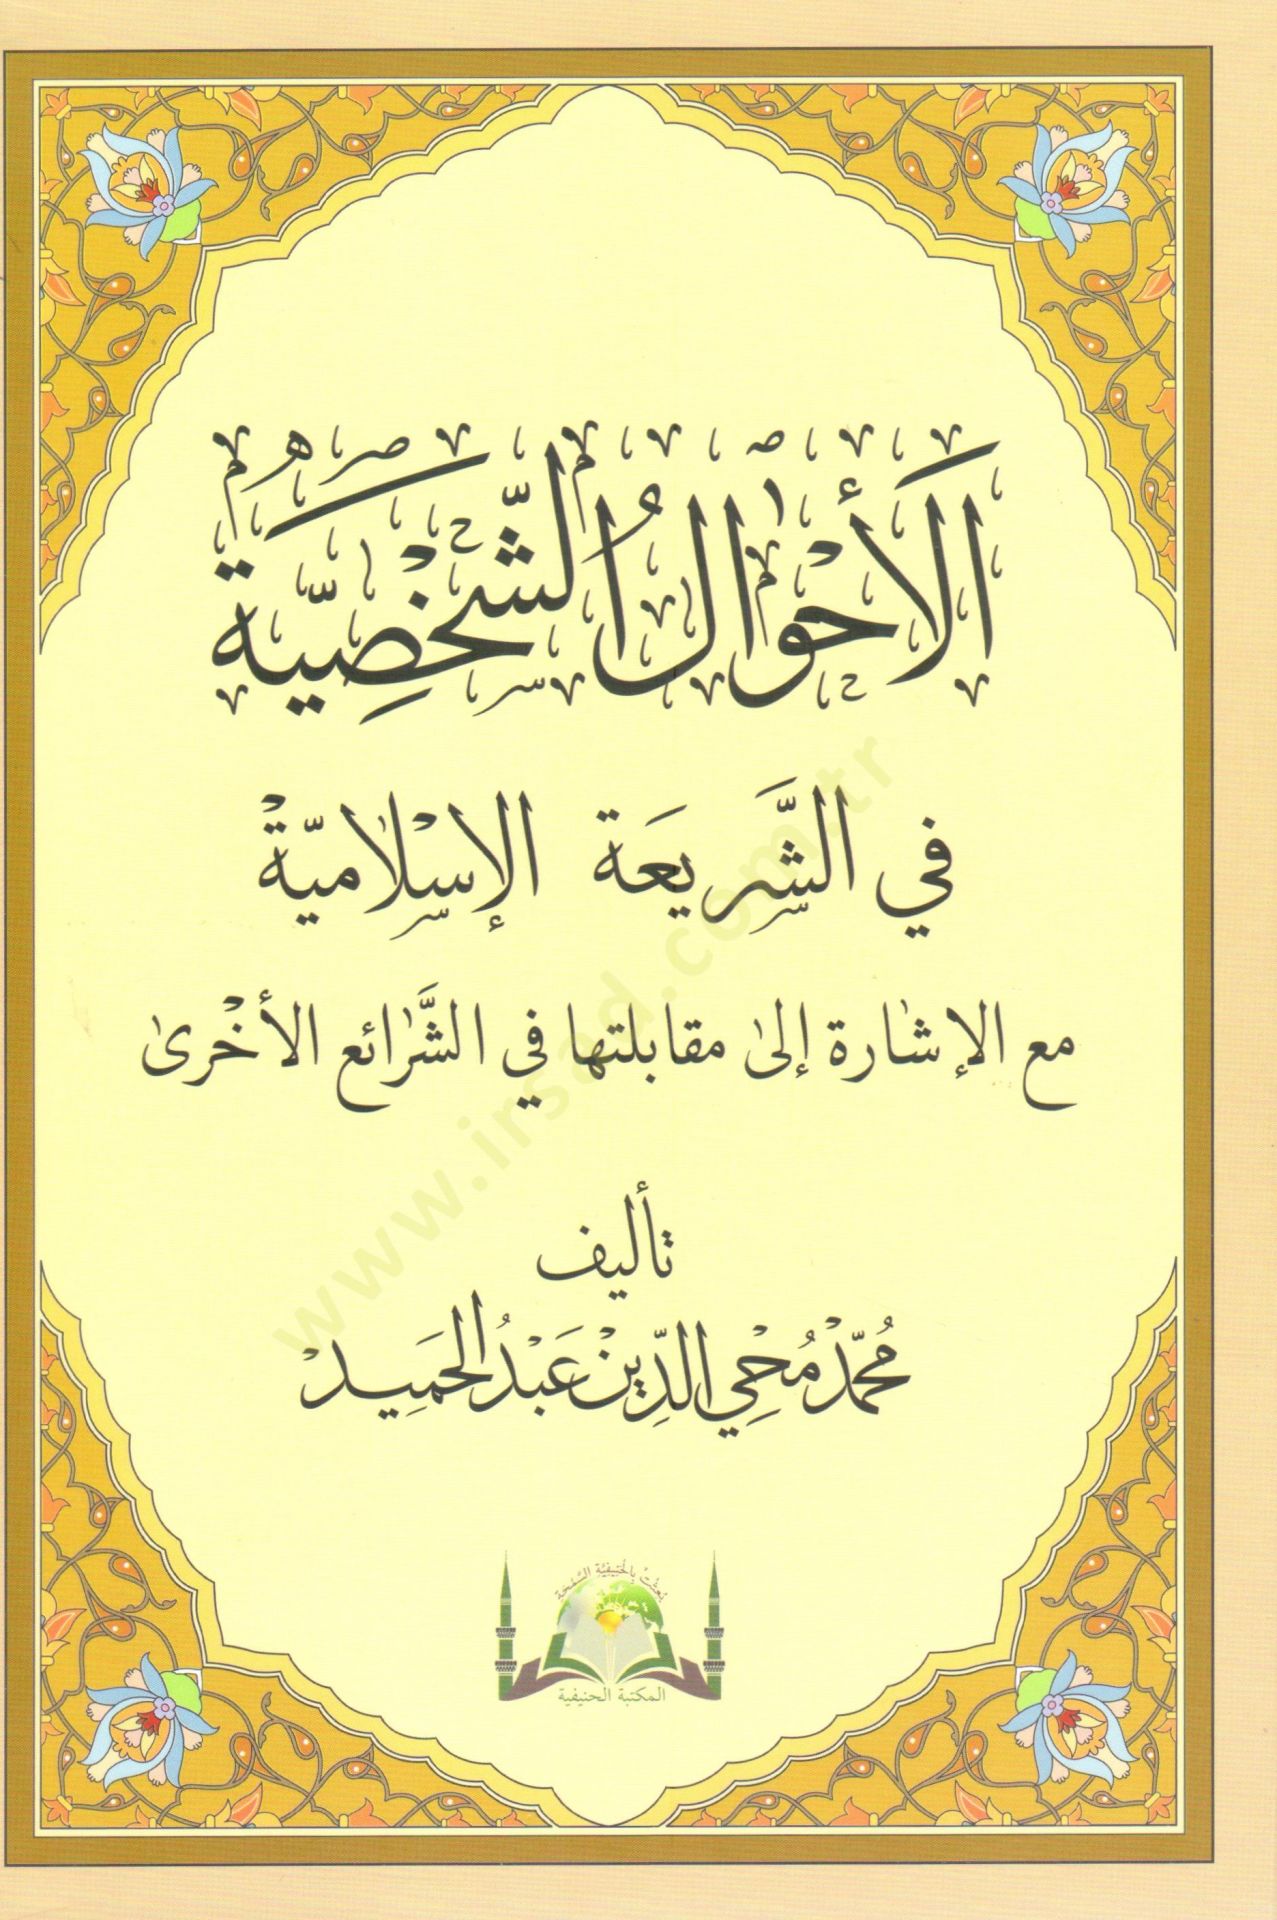 الأَحْوَالُ الشَّخْصِيَّة
في الشَّريعَة الإسْلاميّة
مع الإشارة إلىٰ مقابلتها في الشَّرائع الأخْرىٰ
تأليف
مُحمّد مُحْيي الدِّين عَبْدُ الحَمِيد
بُعِثْتُ بِالحَنِيفِيَّةِ السَّمْحَةِ
المكتبة الحنيفية
www.irsad.com.tr